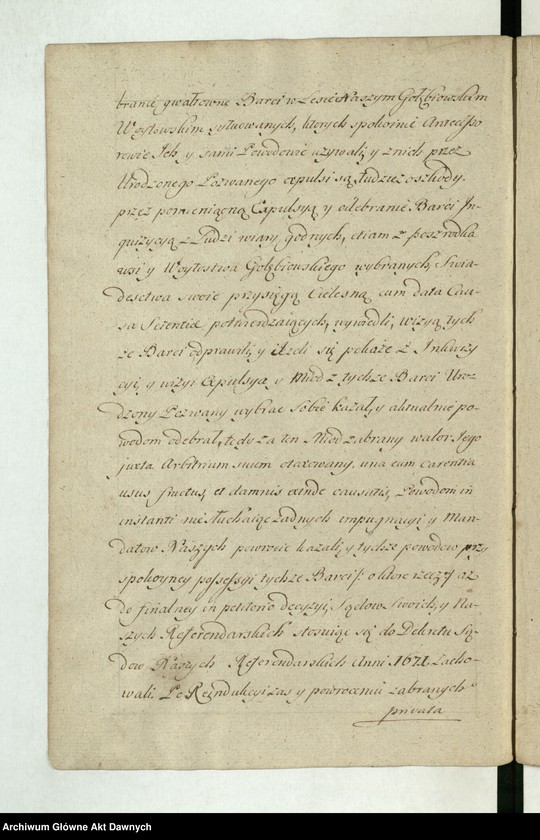 branie gwałtowne Barci w Lesie Naszym Gołębiowskim
Woytowskim sytuowanych, ktorych spokoinie Antecesso
rowie Ich y sami Powodowie używali, y z nich przez
Urodzonego Pozwanego expulsi są, tudziez o szkody
przez pomienioną Expulsyą y odebranie Barci In-
quizycyą z Ludzi wiary godnych, etiam z poszrodka
wsi y Woytostwa Gołębiowskiego wybranych, Swia-
dectwa swoie przysięgą Cielesną cum data Cau-
sa Scientiæ potwierdzaiących, wywiedli, wizyą tych
że Barci odprawili, y ieżeli się pokaże z Inkwizy
cyi, y wizyi Expulsya, y Miod z tychże Barci Uro-
dzony Pozwany wybrac sobie kazał, y aktualnie po-
wodom odebrał, tedy za ten Miod zabrany walor Jego
juxta Arbitrium suum otaxowany, una cum carentia
usus fructus, et damnis exinde causatis, Powodom in
instanti nie słuchaiąc żadnych impugnacyi y Man-
datow Naszych powrocic kazali, y tychże powodow przy
spokoyney possessyi tychże Barci /: o ktore rzecz :/ aż
do finalney in petitorio decyzyi, Sądow Swoich, y Na-
szych Referendarskich stosuiąc się do Dekretu Są-
dow Naszych Referendarskich Anni 1671 zacho-
wali. Po Reindukcyi zas y powroceniu zabranych
privata
Archiwum Główne Akt Dawnych